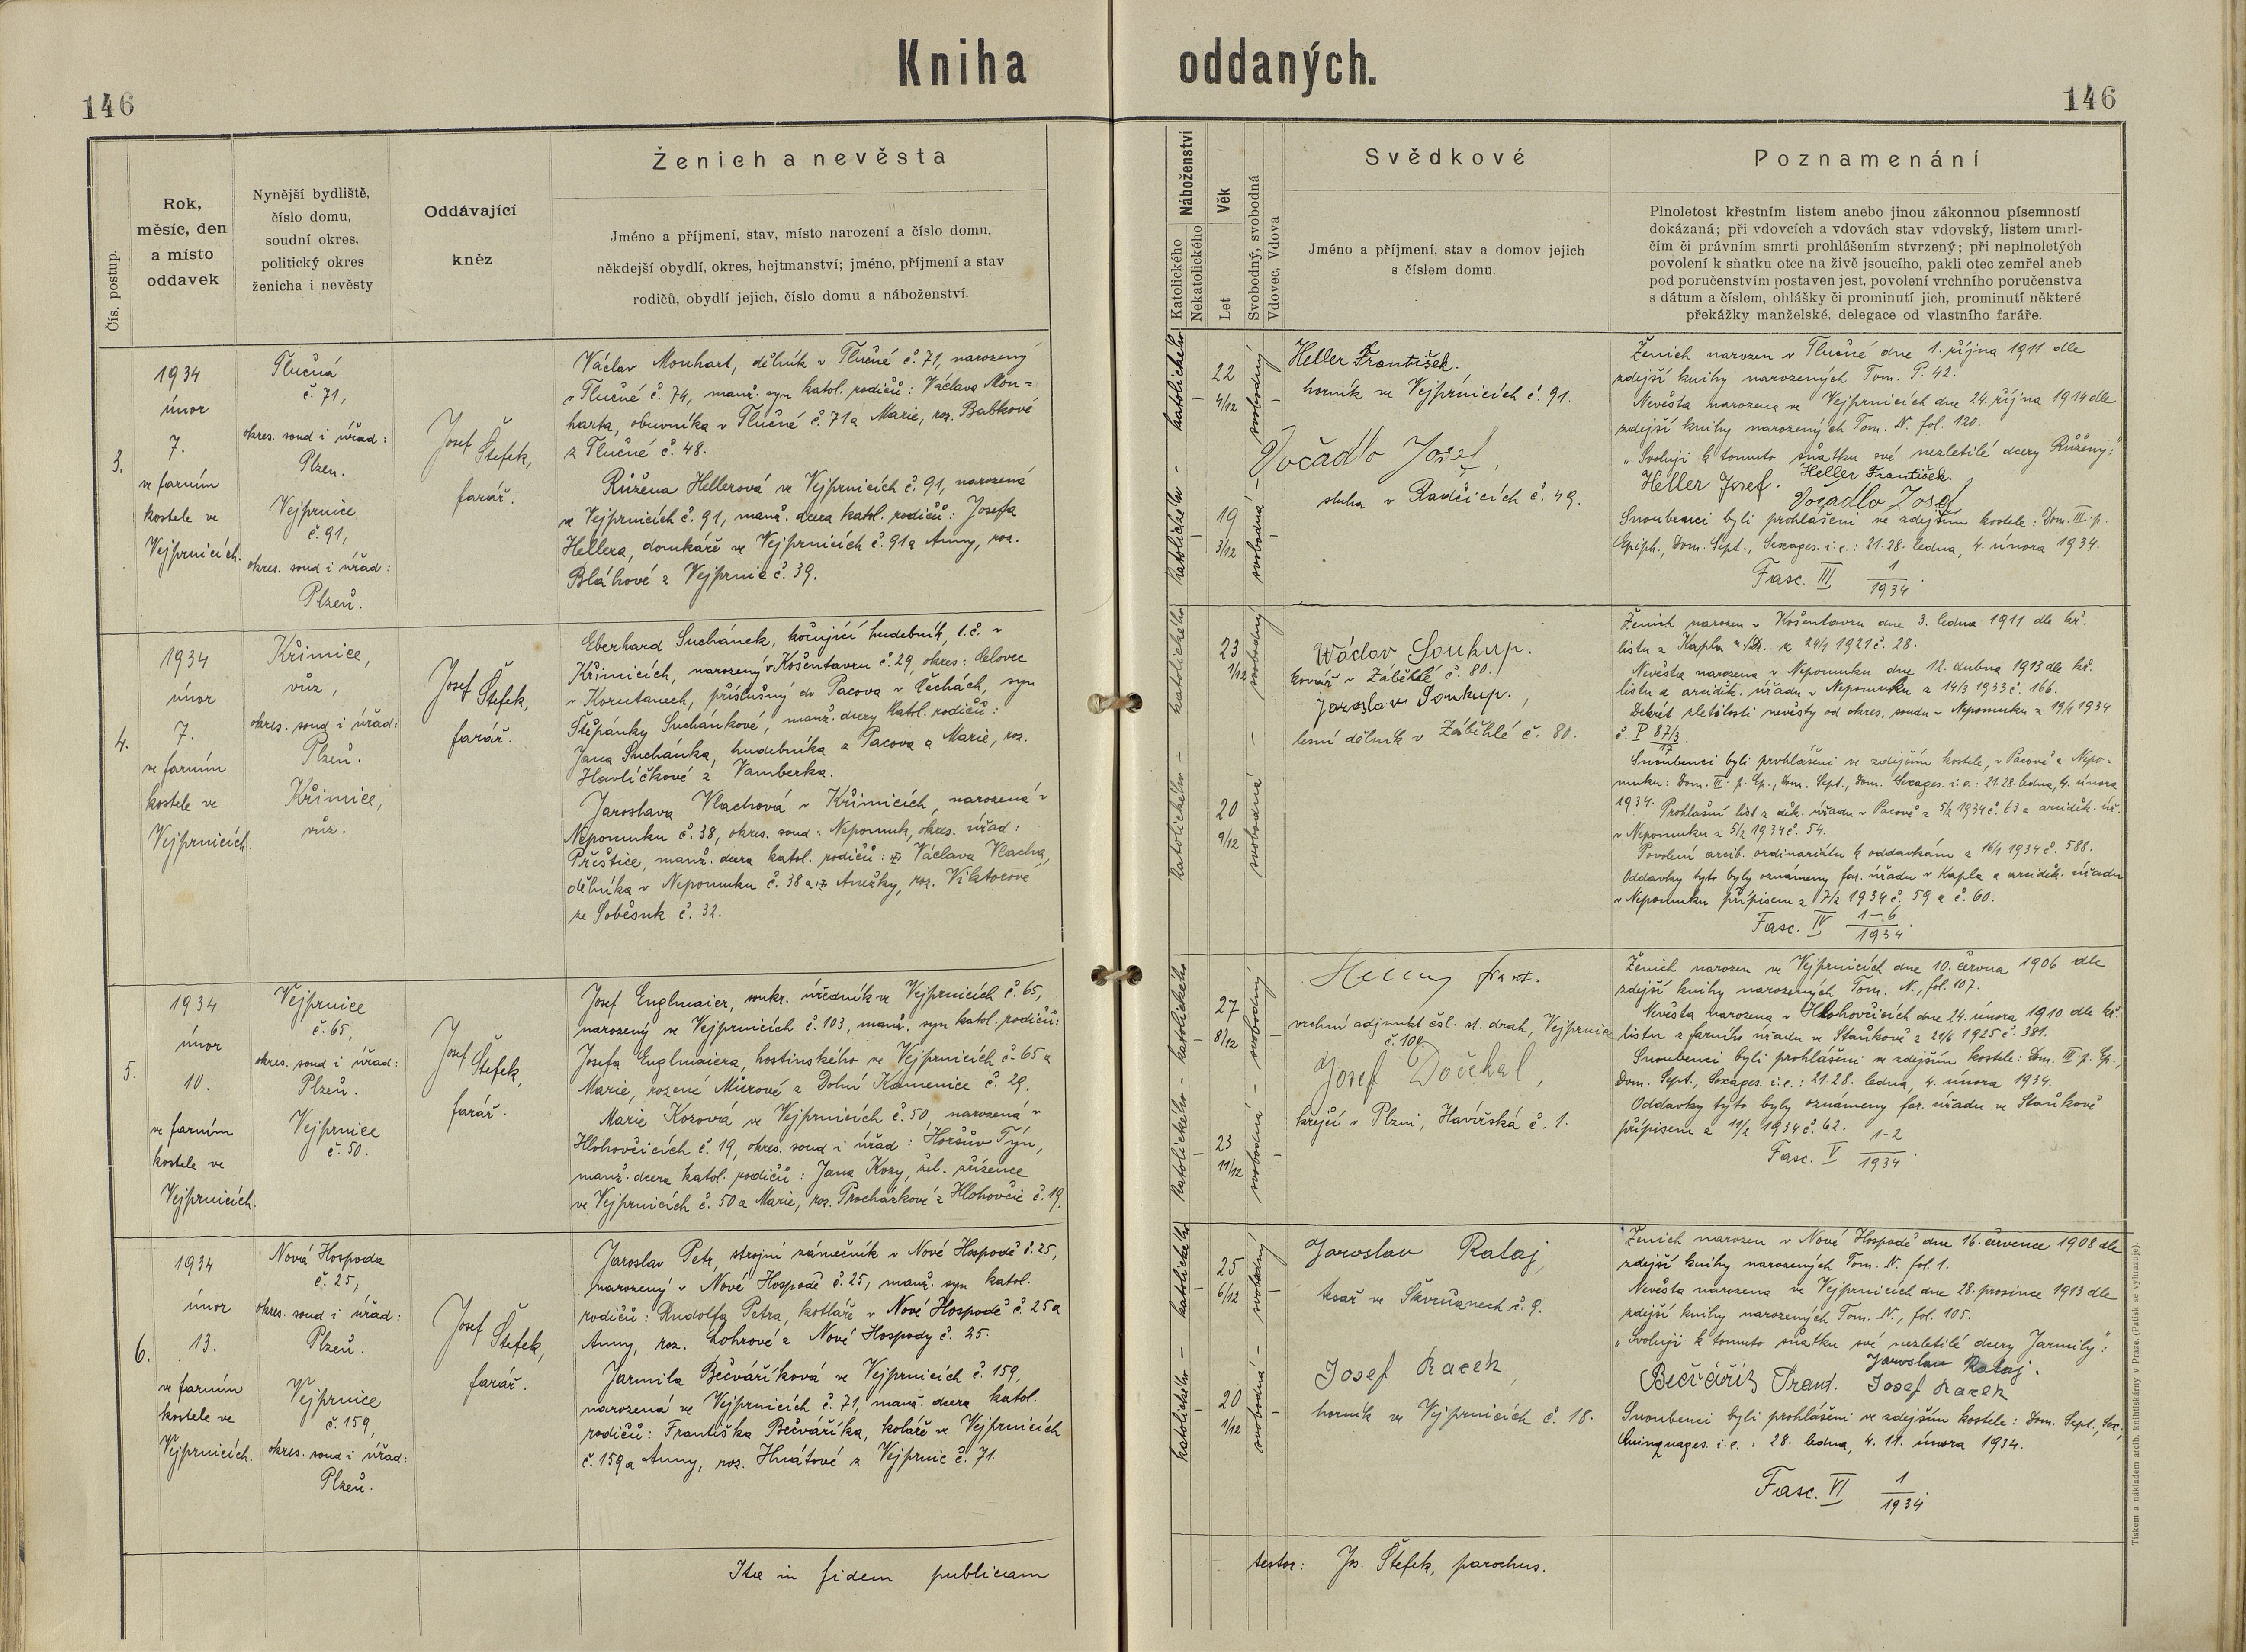 Kniha oddaných.
146
146
Čís. postup.
Rok,
měsíc, den
a místo
oddavek
Nynější bydliště,
číslo domu,
soudní okres,
politický okres
ženicha i nevěsty
Oddávající
kněz
Ženich a nevěsta
Jméno a příjmení, stav, místo narození a číslo domu,
někdejší obydlí, okres, hejtmanství; jméno, příjmení a stav
rodičů, obydlí jejich, číslo domu a náboženství.
Náboženství
Katolického
Nekatolického
Věk
Let
Svobodný, svobodná
Vdovec, Vdova
Svědkové
Jméno a příjmení, stav a domov jejich
s číslem domu.
Poznamenání
Plnoletost křestním listem anebo jinou zákonnou písemností
dokázaná; při vdovcích a vdovách stav vdovský, listem umrl-
čím či právním smrti prohlášením stvrzený; při neplnoletých
povolení k sňatku otce na živě jsoucího, pakli otec zemřel aneb
pod poručenstvím postaven jest, povolení vrchního poručenstva
s dátum a číslem, ohlášky či prominutí jich, prominutí některé
překážky manželské, delegace od vlastního faráře.
3.
1934
únor
7.
ve farním
kostele ve
Vejprnicích.
Tlučná
č. 71,
okres. soud i úřad:
Plzen.
Vejprnice
č. 91,
okres. soud i úřad:
Plzeň.
Josef Štefek,
farář.
Václav Monhart, dělník v Tlučné č. 71, narozený
v Tlučné č. 74, manž. syn katol. rodičů: Václava Mon=
harta, obuvníka v Tlučné č. 71 a Marie, roz. Babkové
z Tlučné č. 48.
Růžena Hellerová ve Vejprnicích č. 91, narozená
ve Vejprnicích č. 91, manž. dcera katol. rodičů: Josefa
Hellera, domkáře ve Vejprnicích č. 91 a Anny, roz.
Bláhové z Vejprnic č. 39.
katolického - katolického -
22 4/12
19 3/12
svobodný
svobodná
Heller František.
horník ve Vejprnicích č. 91.
Vočadlo Josef,
sluha v Radčicích č. 49.
Ženich narozen v Tlučné dne 1. října 1911 dle
zdejší knihy narozených Tom. P. 42.
Nevěsta narozena ve Vejprnicích dne 24. října 1914 dle
zdejší knihy narozených Tom. N. fol. 120.
„Svoluji k tomuto sňatku své nezletilé dcery Růženy:"
Heller Josef. Heller František.
Vočadlo Josef
Snoubenci byli prohlášeni ve zdejším kostele: Dom. III. p.
Epiph., Dom. Sept., Sexages. i.e.: 21. 28. ledna, 4. února 1934.
Fasc. III 1/1934.
4.
1934
únor
7.
ve farním
kostele ve
Vejprnicích.
Křimice,
vůz,
okres. soud i úřad:
Plzeň.
Křimice,
vůz.
Josef Štefek,
farář.
Eberhard Suchánek, kočující hudebník, t. č. v
Křimicích, narozený v Košentavru č. 29, okres: Celovec
v Korutanech, příslušný do Pacova v Čechách, syn
Štěpánky Suchánkové, manž. dcery katol. rodičů:
Jana Suchánka, hudebníka z Pacova a Marie, roz.
Havlíčkové z Vamberka.
Jaroslava Vlachová v Křimicích, narozená v
Nepomuku č. 38, okres. soud: Nepomuk, okres. úřad:
Přeštice, manž. dcera katol. rodičů: Václava Vlacha,
dělníka v Nepomuku č. 38 a Anežky, roz. Viktorové
ze Soběsuk č. 32.
katolického - katolického
23 1/12
20 9/12
svobodný
svobodná
Wáclav Soukup.
kovář v Záběhlé č. 80.
Jaroslav Soukup.,
lesní dělník v Záběhlé č. 80.
Ženich narozen v Košentavru dne 3. ledna 1911 dle kř.
listu z Kapla z 24/1 1921 č. 28.
Nevěsta narozena v Nepomuku dne 12. dubna 1913 dle kř.
listu z arciděk. úřadu v Nepomuku z 14/3 1933 č. 166.
Dekrét zletilosti nevěsty od okres. soudu v Nepomuku z 19/1 1934
č. P 87/3.
Snoubenci byli prohlášeni ve zdejším kostele, v Pacově a Nepo-
muku: Dom. III. p. Ep., Dom. Sept., Dom. Sexages. i.e.: 21. 28. ledna, 4. února
1934. Prohlašní list z děk. úřadu v Pacově z 5/2 1934 č. 63 a arciděk. úř.
v Nepomuku z 5/2 1934 č. 54.
Povolení arcib. ordinariátu k oddavkám z 16/1 1934 č. 588.
Oddavky tyto byly oznámeny far. úřadu v Kapla a arciděk. úřadu
v Nepomuku přípisem z 7/2 1934 č. 59 a č. 60.
Fasc. IV 1-6/1934.
5.
1934
únor
10.
ve farním
kostele ve
Vejprnicích.
Vejprnice
č. 65,
okres. soud i úřad:
Plzeň.
Vejprnice
č. 50.
Josef Štefek,
farář.
Josef Englmaier, soukr. úředník ve Vejprnicích č. 65,
narozený ve Vejprnicích č. 103, manž. syn katol. rodičů:
Josefa Englmaiera, hostinského ve Vejprnicích č. 65 a
Marie, rozené Mierové z Dolní Kamenice č. 29.
Marie Kozová ve Vejprnicích č. 50, narozená v
Hlohovčicích č. 19, okres. soud i úřad: Horšův Týn,
manž. dcera katol. rodičů: Jana Kozy, žel. zřízence
ve Vejprnicích č. 50 a Marie, roz. Procházkové z Hlohovčic č. 19.
katolického - katolického
27 8/12
23 11/12
svobodný
svobodná
frant.
vrchní adjunkt čsl. st. drah, Vejprnice
č. 100.
Josef Dočekal,
krejčí v Plzni, Havířská č. 1.
Ženich narozen ve Vejprnicích dne 10. června 1906 dle
zdejší knihy narozených Tom. N., fol. 107.
Nevěsta narozena v Hlohovčicích dne 24. února 1910 dle kř.
listu z farního úřadu ve Staňkově z 21/6 1925 č. 381.
Snoubenci byli prohlášeni ve zdejším kostele: Dom. III. p. Ep.,
Dom. Sept., Sexages. i.e.: 21. 28. ledna, 4. února 1934.
Oddavky tyto byly oznámeny far. úřadu ve Staňkově
přípisem z 11/2 1934 č. 62.
Fasc. V 1-2/1934.
6.
1934
únor
13.
ve farním
kostele ve
Vejprnicích.
Nová Hospoda
č. 25,
okres. soud i úřad:
Plzeň.
Vejprnice
č. 159,
okres. soud i úřad:
Plzeň.
Josef Štefek,
farář.
Jaroslav Petr, strojní zámečník v Nové Hospodě č. 25,
narozený v Nové Hospodě č. 25, manž. syn katol.
rodičů: Rudolfa Petra, kotláře v Nové Hospodě č. 25 a
Anny, roz. Lohrové z Nové Hospody č. 25.
Jarmila Bečváříková ve Vejprnicích č. 159,
narozená ve Vejprnicích č. 71, manž. dcera katol.
rodičů: Františka Bečváříka, koláře ve Vejprnicích
č. 159 a Anny, roz. Hnátové z Vejprnic č. 71.
katolického - katolického
25 6/12
20 1/12
svobodný
svobodná
Jaroslav Rataj,
tesař ve Skvrňanech č. 9.
Josef Racek,
horník ve Vejprnicích č. 18.
Ženich narozen v Nové Hospodě dne 16. července 1908 dle
zdejší knihy narozených Tom. N. fol. 1.
Nevěsta narozena ve Vejprnicích dne 28. prosince 1913 dle
zdejší knihy narozených Tom. N., fol. 105.
„Svoluji k tomuto sňatku své nezletilé dcery Jarmily":
Jaroslav Rataj.
Bečvářík Frant. Josef Racek
Snoubenci byli prohlášeni ve zdejším kostele: Dom. Sept., Sex.,
Quinquages. i.e.: 28. ledna, 4. 11. února 1934.
Fasc. VI 1/1934.
Ita in fidem publicam
testor: Jos. Štefek, parochus.
Tiskem a nákladem arcib. knihtiskárny v Praze. (Patisk se vyhrazuje).